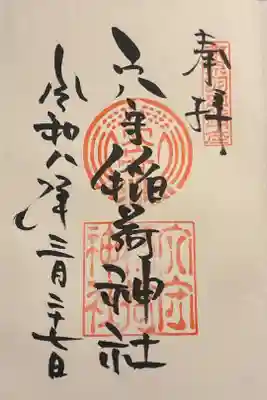 奉拝
穴守稲荷神社
令和八年三月二十七日